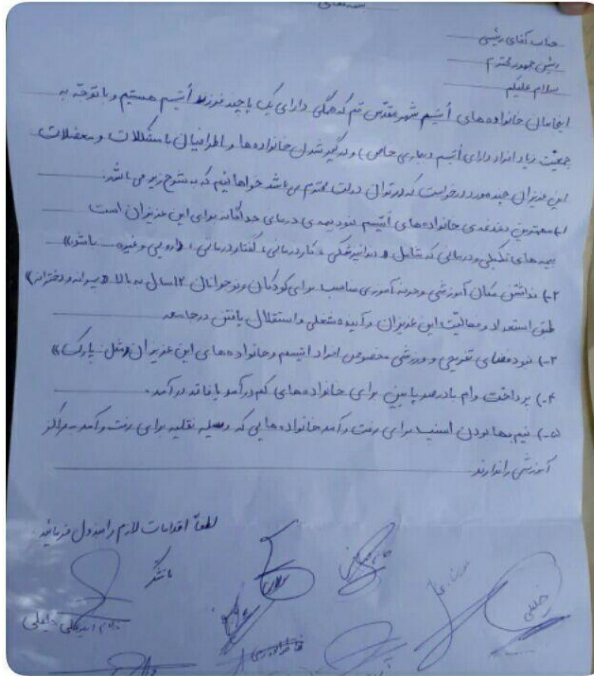 جناب آقای رئیسی
ریس جمهور محترم
سلام علیکم
اینجانبان خانواده های اُتیسم شهر مقدس قم که همگی دارای یک یا چند فرزند اُتیسم هستیم و با توجه به
جمعیت زیاد افراد دارای اُتیسم و درگیر شدن خانواده ها و اطرافیان با مشکلات و معضلات
این عزیزان چند مورد درخواست که در توان دولت محترم می باشد خواهانیم که به شرح زیر می باشد:
۱-) مهمترین دغدغه ی خانواده های اُتیسم نبود بیمه ی درمانی جداگانه برای این عزیزان است
بیمه های تکمیلی و درمانی که شامل «دندانپزشکی، کار درمانی، گفتار درمانی، دارویی و غیره ... باشد»
۲-) نداشتن مکان آموزشی و حرفه آموزی مناسب برای کودکان و نوجوانان ۱۴ سال به بالا «پسرانه و دخترانه»
طبق استعداد و فعالیت این عزیزان و آینده شغلی و استقلال یافتن در جامعه
۳-) نبود فضای تفریحی و ورزشی مخصوص افراد اتیسم و خانواده های این عزیزان «مثل پارک»
۴-) پرداخت وام با درصد پایین برای خانواده های کم درآمد یا فاقد درآمد.
۵-) نیم بها بودن اسنپ برای رفت و آمد خانواده هایی که وسیله نقلیه برای رفت و آمد به مراکز
آموزشی را ندارند.
لطفاً اقدامات لازم را مبذول فرمائید.
با تشکر